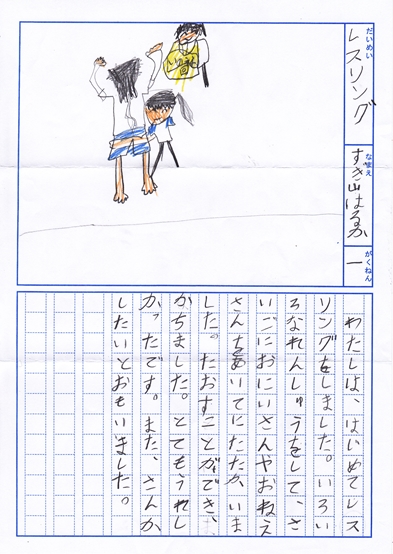 だいめい
レスリング
なまえ
すぎ山はるか
がくねん
一
わたしは、はじめてレス
リングをしました。いろい
ろなれんしゅうをして、さ
いごにおにいさんやおねえ
さんをあいてにたたかいま
した。たおすことができ、
かちました。とてもうれし
かったです。また、さんか
したいとおもいました。